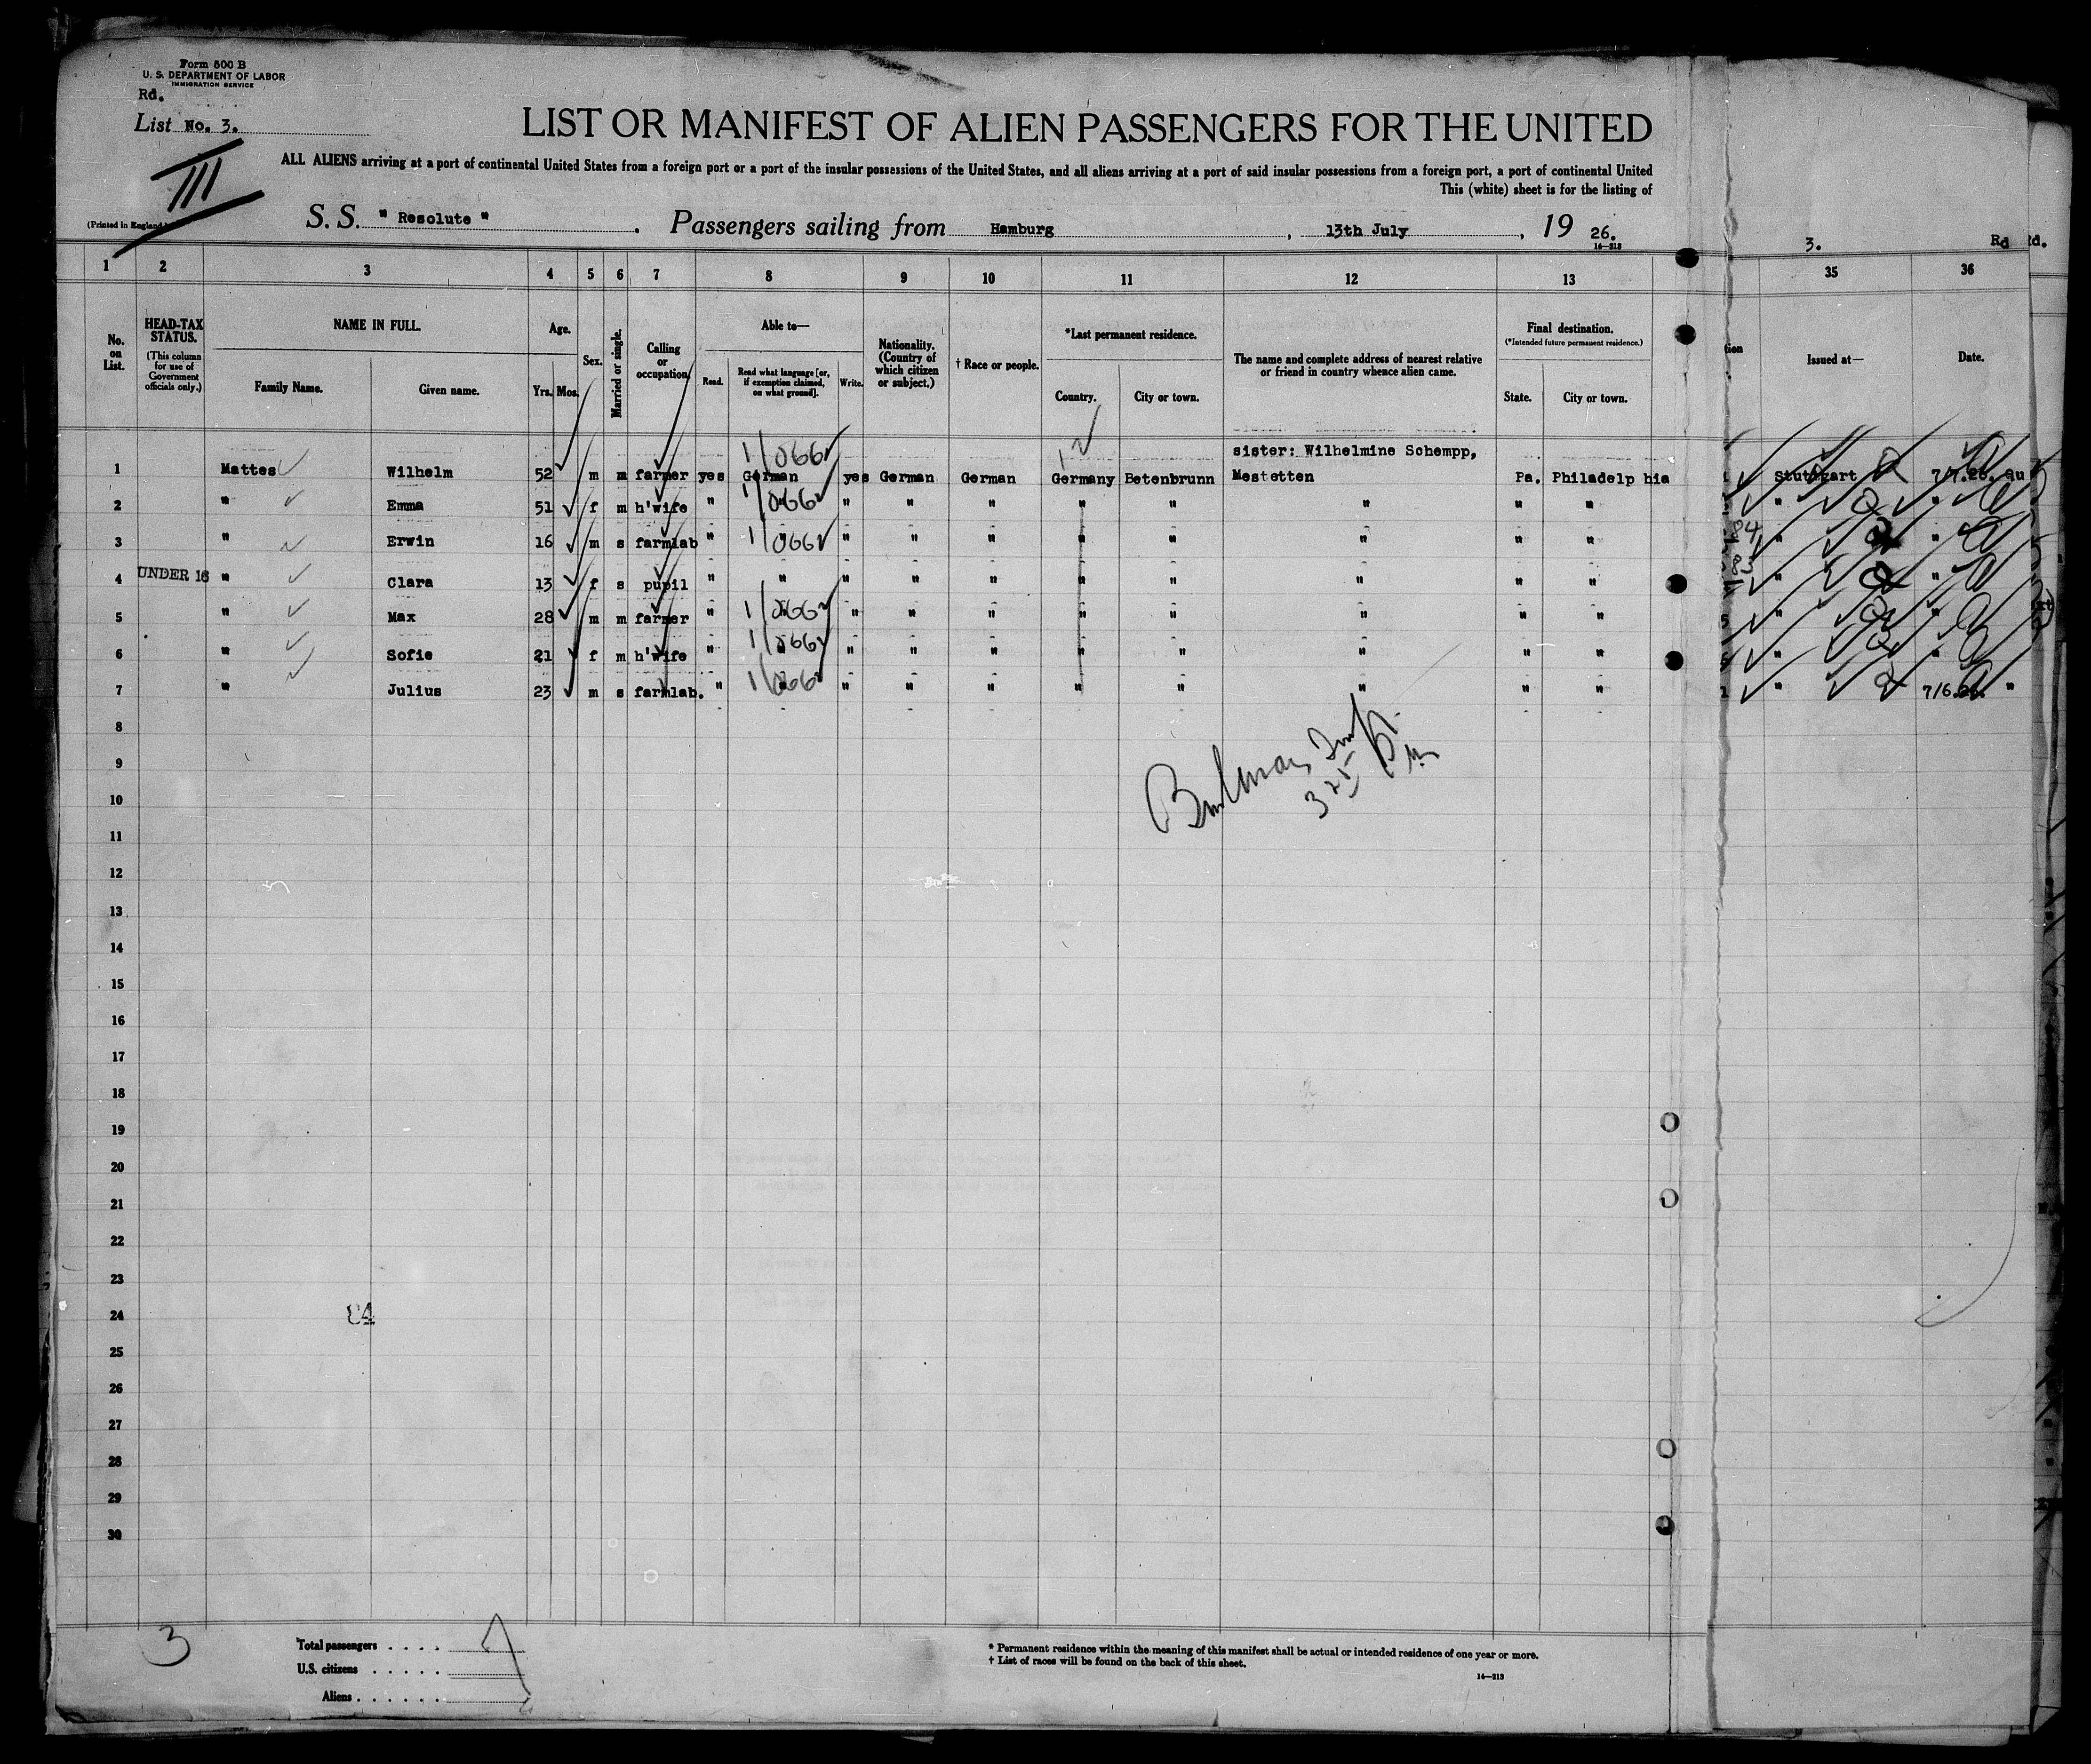 Form 500 B
U. S. DEPARTMENT OF LABOR
IMMIGRATION SERVICE
Rd.
List No. 3.
III
LIST OR MANIFEST OF ALIEN PASSENGERS FOR THE UNITED
ALL ALIENS arriving at a port of continental United States from a foreign port or a port of the insular possessions of the United States, and all aliens arriving at a port of said insular possessions from a foreign port, a port of continental United
This (white) sheet is for the listing of
(Printed in England
S. S. " Resolute " . Passengers sailing from Hamburg , 13th July , 19 26.
14—213
3. Rd Rd.
1 2 3 4 5 6 7 8 9 10 11 12 13 35 36
No. on List.
HEAD-TAX STATUS.
(This column for use of Government officials only.)
NAME IN FULL.
Family Name. Given name.
Age.
Yrs. Mos.
Sex.
Married or single.
Calling or occupation
Able to—
Read. Read what language [or, if exemption claimed, on what ground]. Write.
Nationality. (Country of which citizen or subject.)
† Race or people.
*Last permanent residence.
Country. City or town.
The name and complete address of nearest relative or friend in country whence alien came.
Final destination.
(*Intended future permanent residence.)
State. City or town.
tion
Issued at—
Date.
sister: Wilhelmine Schempp,
1 Mattes Wilhelm 52 m m farmer yes German yes German German Germany Betenbrunn Mestetten Pa. Philadelp hia Stuttgart 7/7.26. au
2 " Emma 51 f m h'wife " " " " " " " " " " " "
3 " Erwin 16 m s farmlab " " " " " " " " " " " "
4 UNDER 16 " Clara 13 f s pupil " " " " " " " " " " " "
5 " Max 28 m m farmer " " " " " " " " " " " "
6 " Sofie 21 f m h'wife " " " " " " " " " " " "
7 " Julius 23 m s farmlab. " " " " " " " " " " " 7/6.26. "
8
9
10
11
12
13
14
15
16
17
18
19
20
21
22
23
24
25
26
27
28
29
30
84
3
Total passengers . . . .
U.S. citizens . . . . .
Aliens . . . . . .
* Permanent residence within the meaning of this manifest shall be actual or intended residence of one year or more.
† List of races will be found on the back of this sheet.
14—213